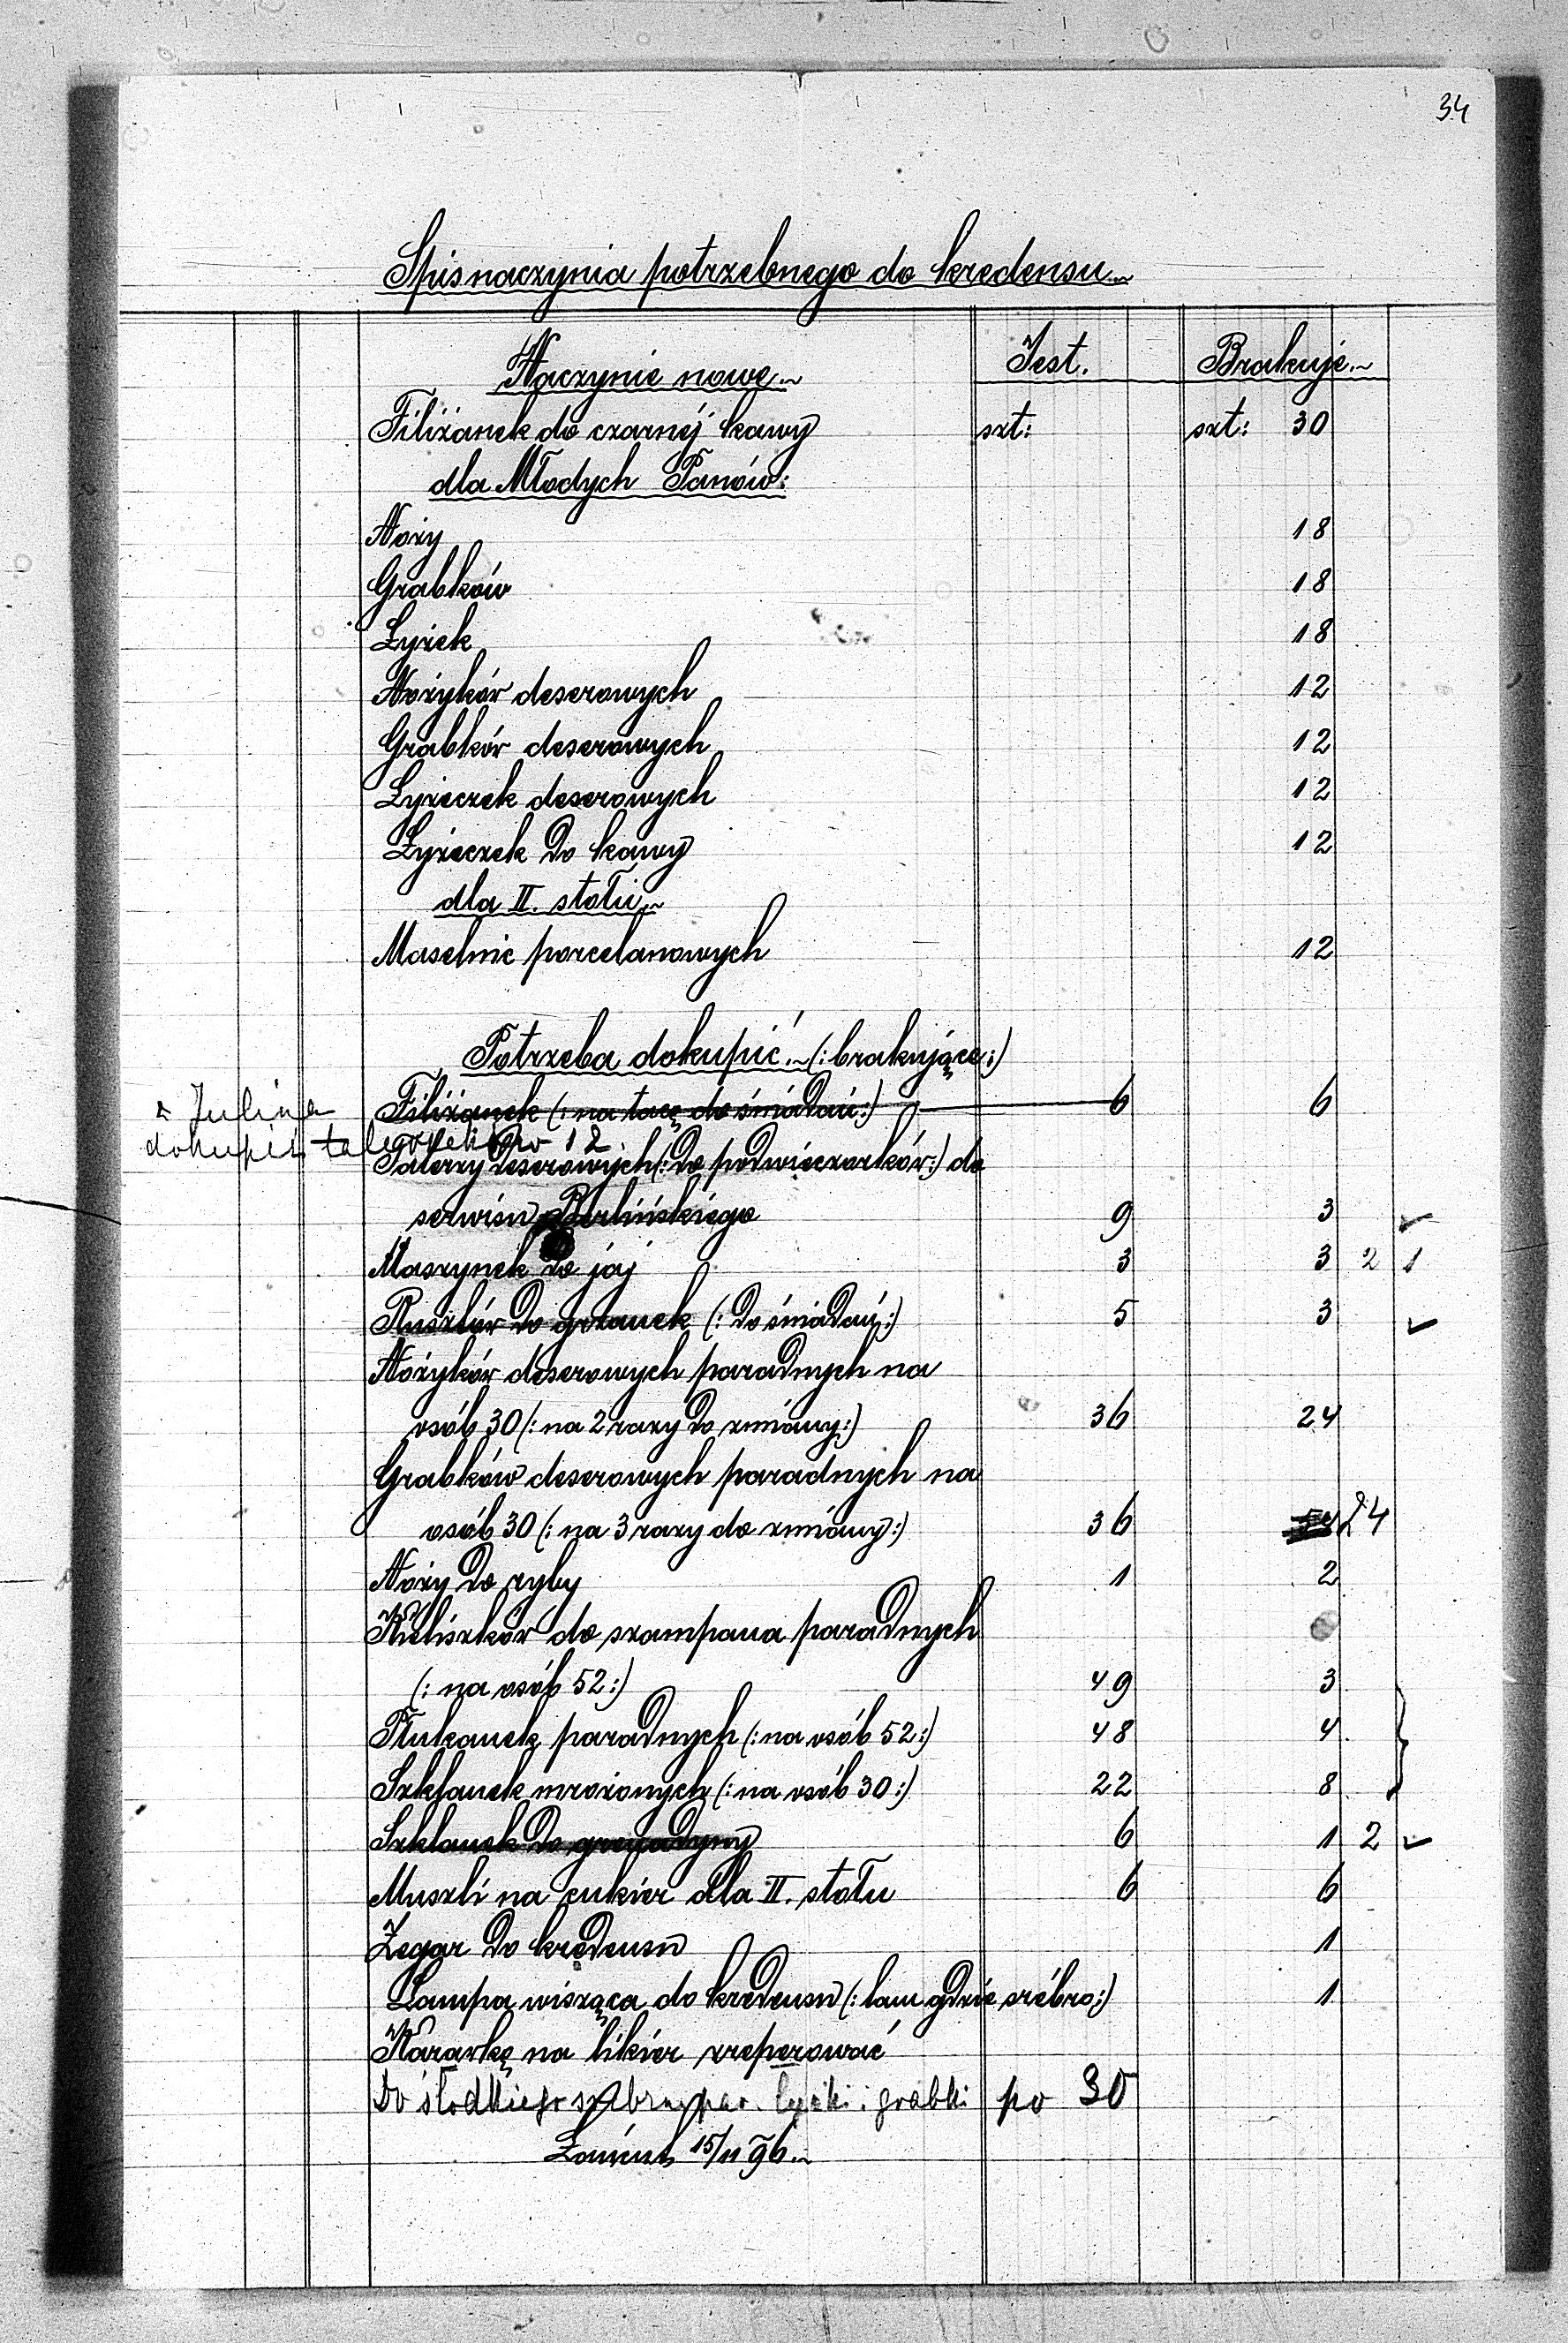 34
Spis naczynia potrzebnego do kredensu
Naczynie nowe Jest. Brakuje
Filiżanek do czarnéj kawy szt: szt: 30
dla Młodych Panów:
Noży 18
Grabków 18
Łyżek 18
Nożyków deserowych 12
Grabków deserowych 12
Łyżeczek deserowych 12
Łyżeczek do kawy 12
dla II. stołu
Maselnic porcelanowych 12
Potrzeba dokupić (:brakujące:)
Filiżanek (: na tacę do śniadań:) 6 6
dokupić po 12
Talerzy deserowych (: do podwieczorków:) do
serwisu Berlińskiego 9 3 ✓
Maszynek do jaj 3 3 2 1
Rusztów do grzanek (: do śniadań:) 5 3 ✓
Nożyków deserowych paradnych na
osób 30 (: na 2 razy do zmiany:) 36 24
Grabków deserowych paradnych na
osób 30 (: na 3 razy do zmiany:) 36 54 24
Noży do ryby 1 2
Kieliszków do szampana paradnych
(: na osób 52:) 49 3
Płukanek paradnych (: na osób 52:) 48 4
Szklanek mrożonych (: na osób 30:) 22 8
Szklanek do 6 1 2 ✓
Muszli na cukier dla II. stołu 6 6
Zegar do kredensu 1
Lampa wisząca do kredensu (: tam gdzie srébro:) 1
Karawkę na likier zreperować
Do słodkiego łyżki i grabki po 30
Łańcut 15/11 96